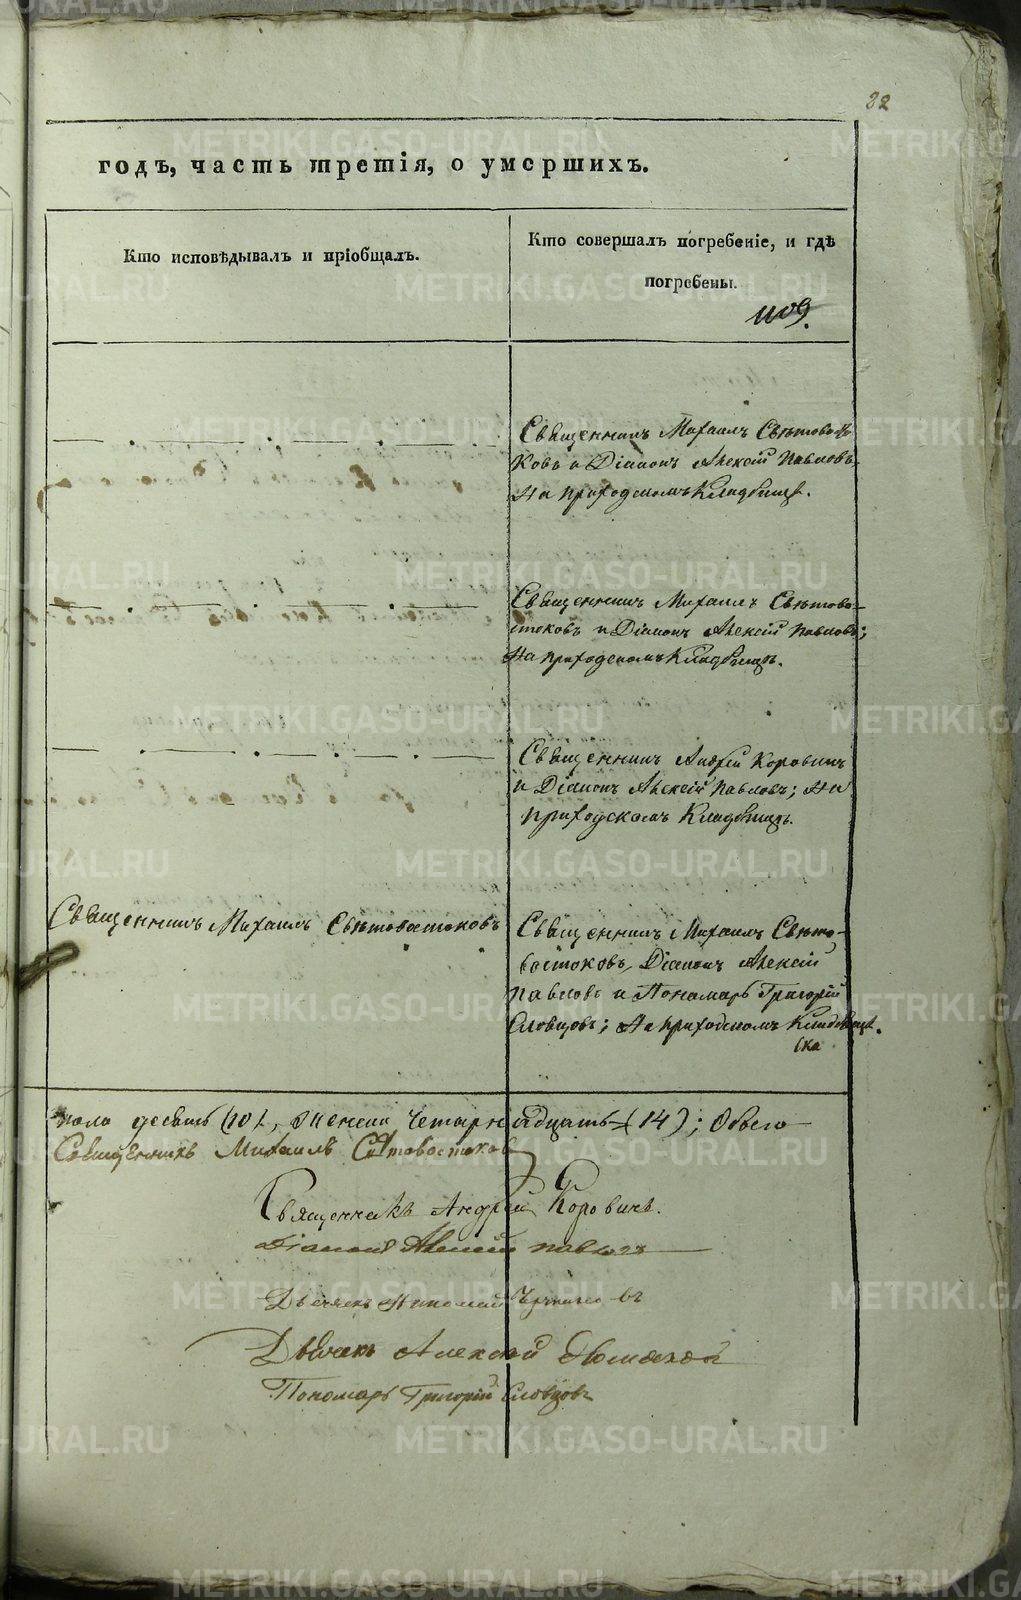 82
годъ, часть третія, о умершихъ.
Кто исповѣдывалъ и пріобщалъ.
Кто совершалъ погребеніе, и гдѣ
погребены.
1109.
Священникъ Михаилъ Свѣтовосто
ковъ и Діаконъ Алексій Павловъ.
На приходскомъ Кладбищѣ.
Священникъ Михаилъ Свѣтово-
стоковъ и Діаконъ Алексій Павловъ;
На приходскомъ Кладбищѣ.
Священникъ Андрей Коровинъ
и Діаконъ Алексій Павловъ; На
приходскомъ Кладбищѣ.
Священникъ Михаилъ Свѣтовостоковъ
Священникъ Михаилъ Свѣто-
востоковъ, Діаконъ Алексій
Павловъ и Пономарь Григорій
Словцовъ; На приходскомъ Кладбищѣ.
пола десять (10), Женска четырнадцать (14); Обоего
Священникъ Михаилъ Свѣтовостоковъ
Священникъ Андрей Коровинъ.
Діаконъ Алексій Павловъ
Дьячекъ Николай
Дьячекъ Алексѣй
Пономарь Григорій Словцовъ
METRIKI.GASO-URAL.RU